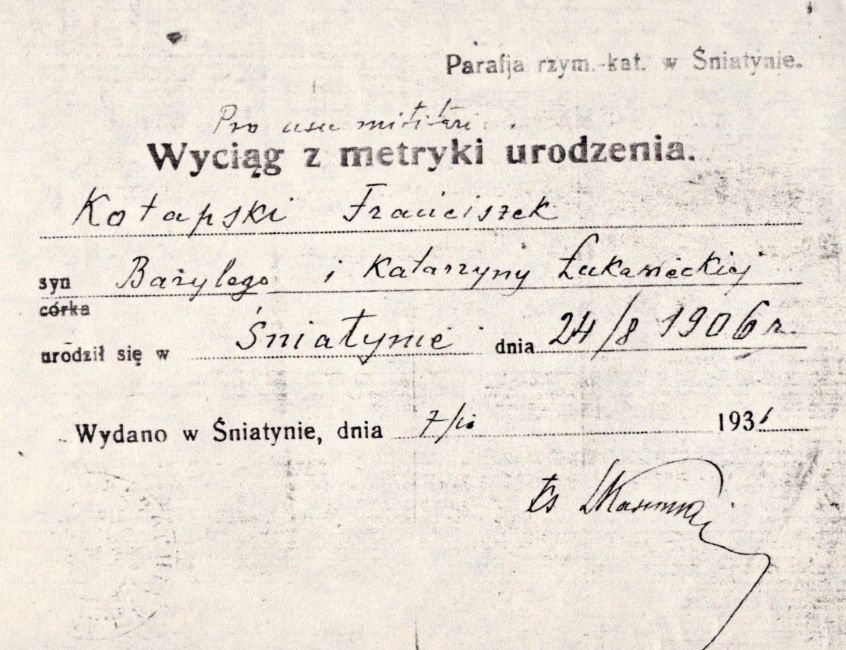 Parafja rzym.-kat. w Śniatynie.
Pro usu militari
Wyciąg z metryki urodzenia.
Kotapski Franciszek
syn Bazylego i Katarzyny Łukasieckiej
córka
urodził się w Śniatynie dnia 24/8 1906 r.
Wydano w Śniatynie, dnia 7/10 1931